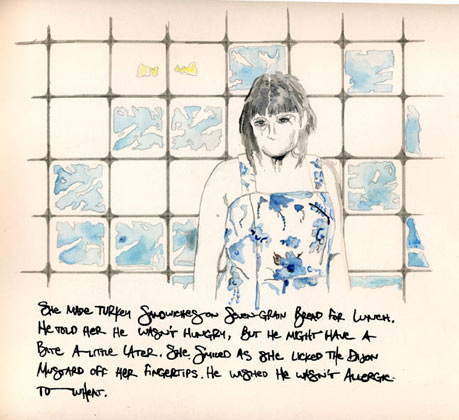 She made turkey sandwiches on seven grain bread for lunch.
He told her he wasn't hungry, but he might have a
bite a little later. She smiled as she licked the dijon
mustard off her fingertips. He wished he wasn't allergic
to wheat.